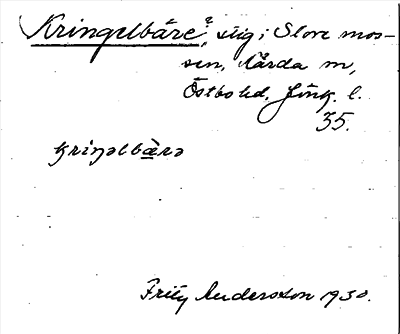 Kringelbäre?, stig; Slore mos-
sen, Kärda sn,
Östbo hd. Jönk. l.
35.
kriŋəlbärə
Fritz Andersson 1930.